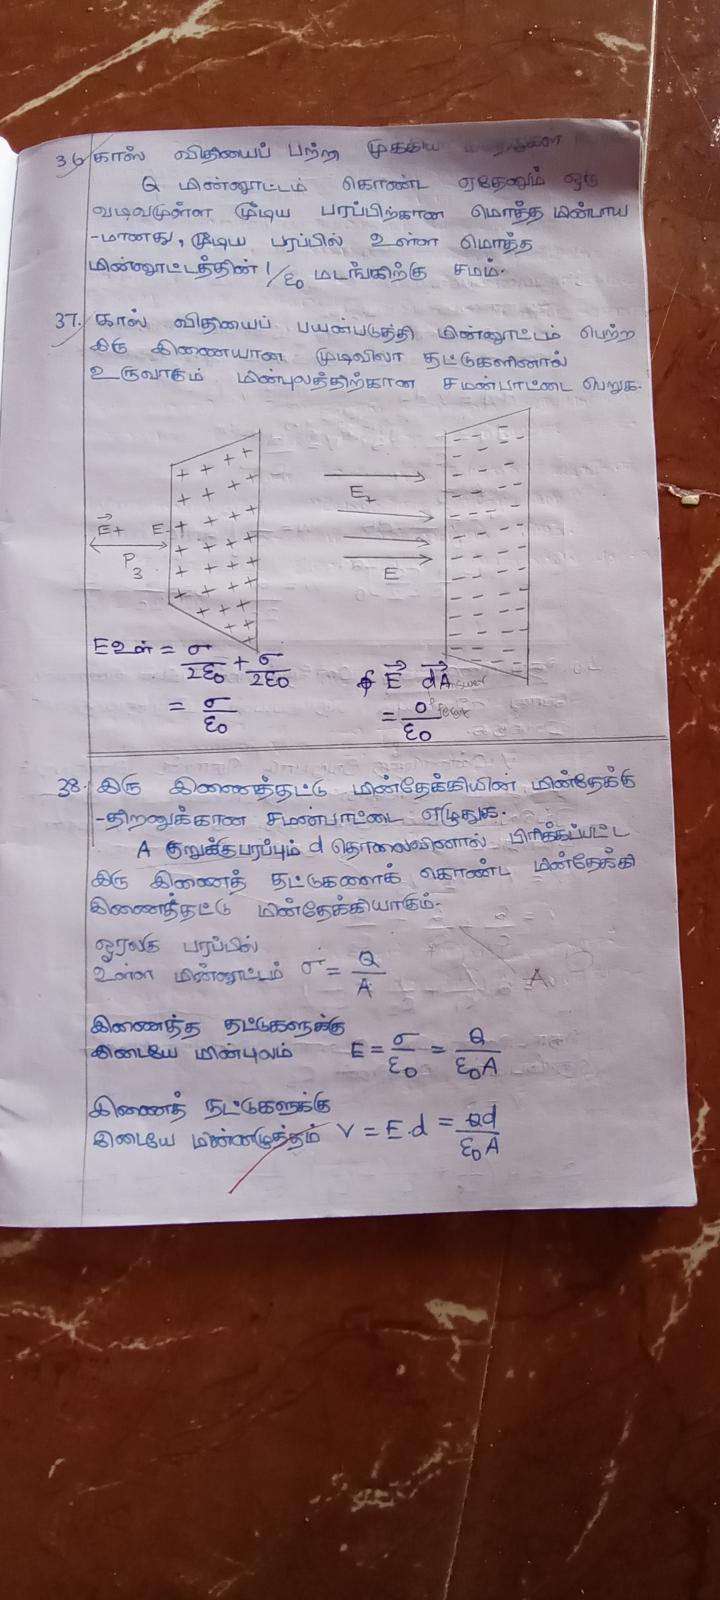 36. காஸ் விதியைப் பற்ற முக்கிய
Q மின்னூட்டம் கொண்ட ஏதேனும் ஒரு
வடிவமுள்ள மூடிய பரப்பிற்கான மொத்த மின்பாய
-மானது, மூடிய பரப்பில் உள்ள மொத்த
மின்னூட்டத்தின் 1/ε₀ மடங்கிற்கு சமம்.
37. காஸ் விதியைப் பயன்படுத்தி மின்னூட்டம் பெற்ற
இரு இணையான முடிவிலா தட்டுகளினால்
உருவாகும் மின்புலத்திற்கான சமன்பாட்டை பெறுக.
E₊
E⃗+ E-
P₃
E
E உள் = σ/2ε₀ + σ/2ε₀
= σ/ε₀
∮ E⃗ dA⃗
= 0/ε₀
38. இரு இணைத்தட்டு மின்தேக்கியின் மின்தேக்கு
-திறனுக்கான சமன்பாட்டை எழுதுக.
A குறுக்குபரப்பும் d தொலைவினால் பிரிக்கப்பட்ட
இரு இணைத் தட்டுகளைக் கொண்ட மின்தேக்கி
இணைத்தட்டு மின்தேக்கியாகும்.
ஓரலகு பரப்பில்
உள்ள மின்னூட்டம் σ = Q/A
இணைத்த தட்டுகளுக்கு
இடையே மின்புலம் E = σ/ε₀ = Q/ε₀A
இணைத் தட்டுகளுக்கு
இடையே மின்னழுத்தம் V = E.d = Qd/ε₀A